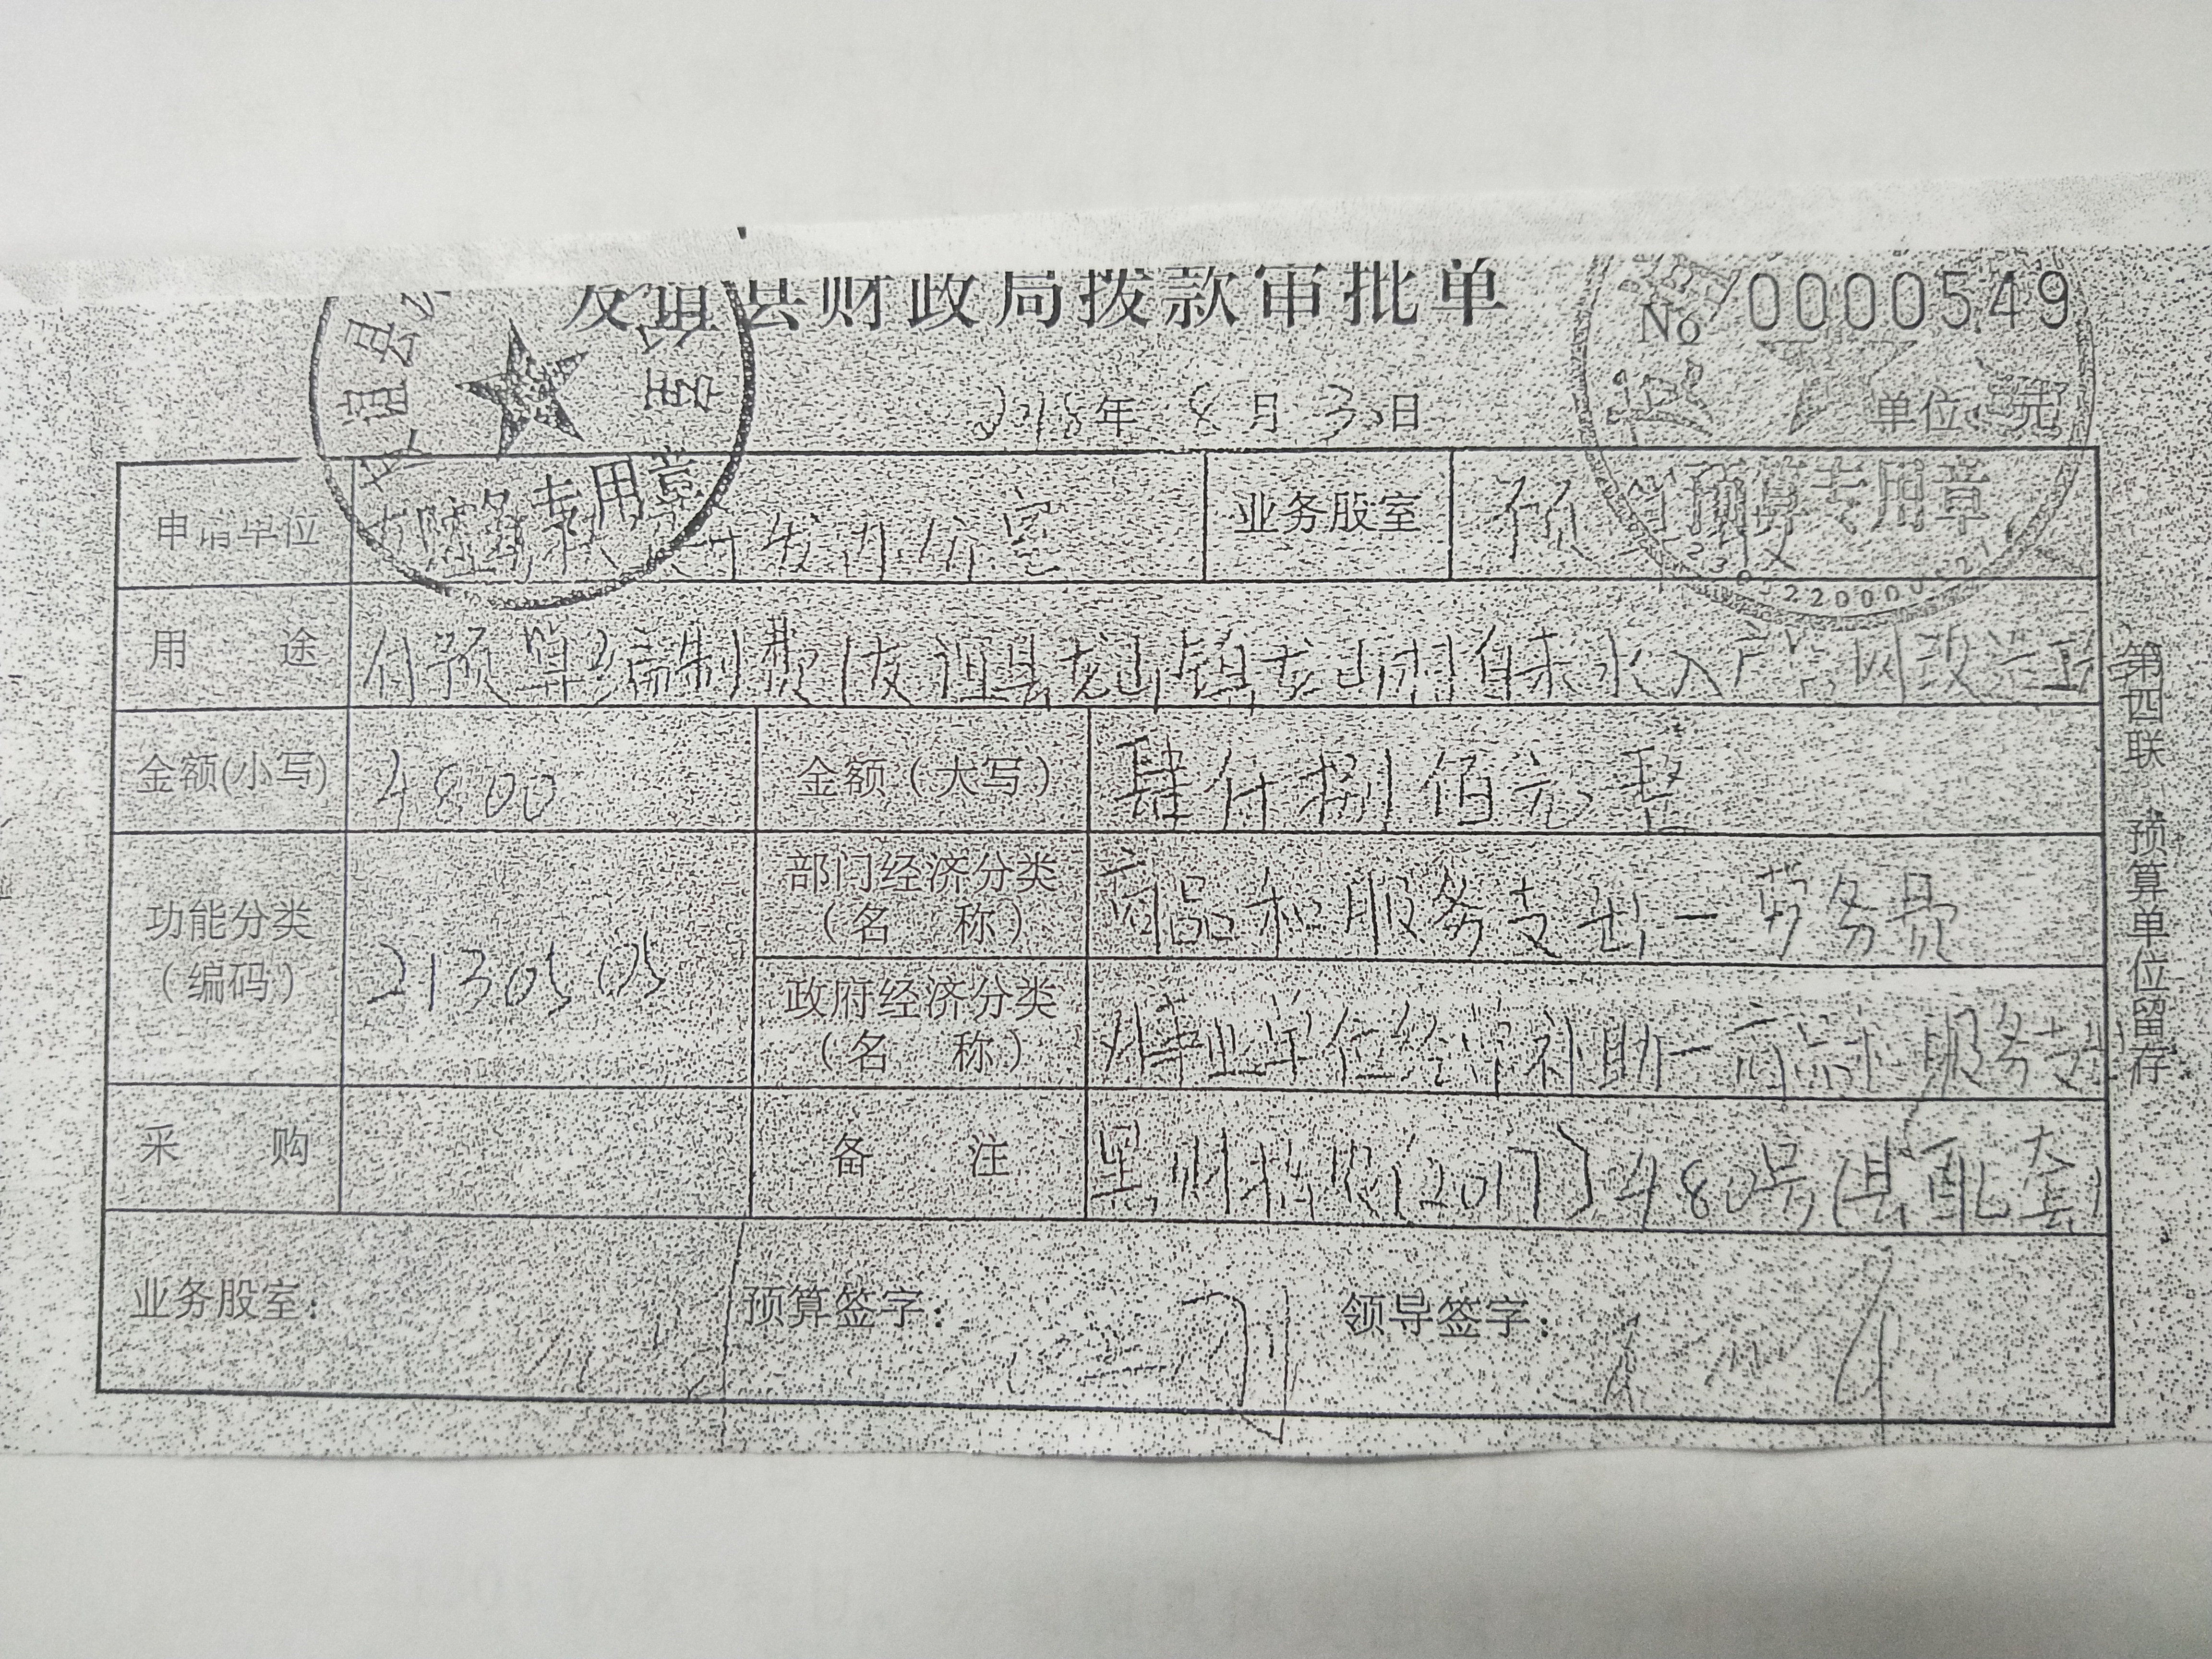 友谊县财政局拨款审批单
No 0000549
2018年 8月 30日
单位:元
申请单位
开发办公室
业务股室
预算
用 途
付预算编制费(友谊县龙山镇龙山村自来水入户管网改造工
金额(小写)
4800
金额(大写)
肆仟捌佰元整
功能分类
(编码)
2130505
部门经济分类
(名 称)
商品和服务支出-劳务费
政府经济分类
(名 称)
对事业单位经常补助-商品和服务支出
采 购
备 注
黑财指农(2017)480号(县配套)
业务股室:
预算签字:
领导签字:
第四联 预算单位留存
谊县
室
财务专用章
预算专用章